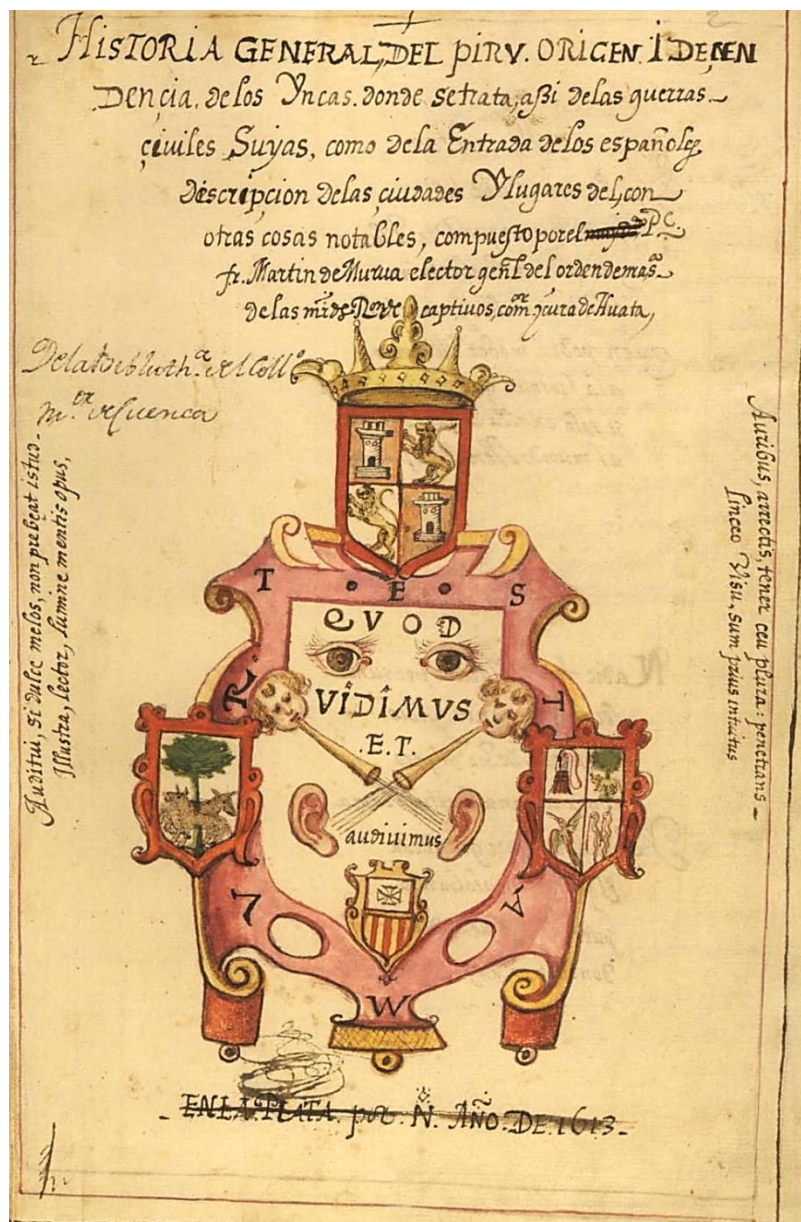 HISTORIA GENERAL, DEL PIRV. ORIGEN. I DEÇEN
DENÇIA. de los Yncas. donde se trata, aßi de las guerras
çiviles Suyas, como de la Entrada de los españoles,
descripcion de las çiudades Y lugares del, con
otras cosas notables, compuesto por el P. C.
fr. Martin de Murua elector genl. del orden de
de las captivos, y cura de Huata,
De la Biblioth.ª del Coll.º
m.ºr de Cuenca
Auditui, si dulce melos, non prebeat istud.
Illustra, lector, lumine mentis opus,
Auribus, arrectis, tener ceu plura: penetrans
linceo Visu, sum prius intuitus
T. E. S
QVOD
R.
VIDIMVS
T
.E.T.
audiuimus
7
A
W
EN LA PLATA. por. N. AÑO. DE. 1613.